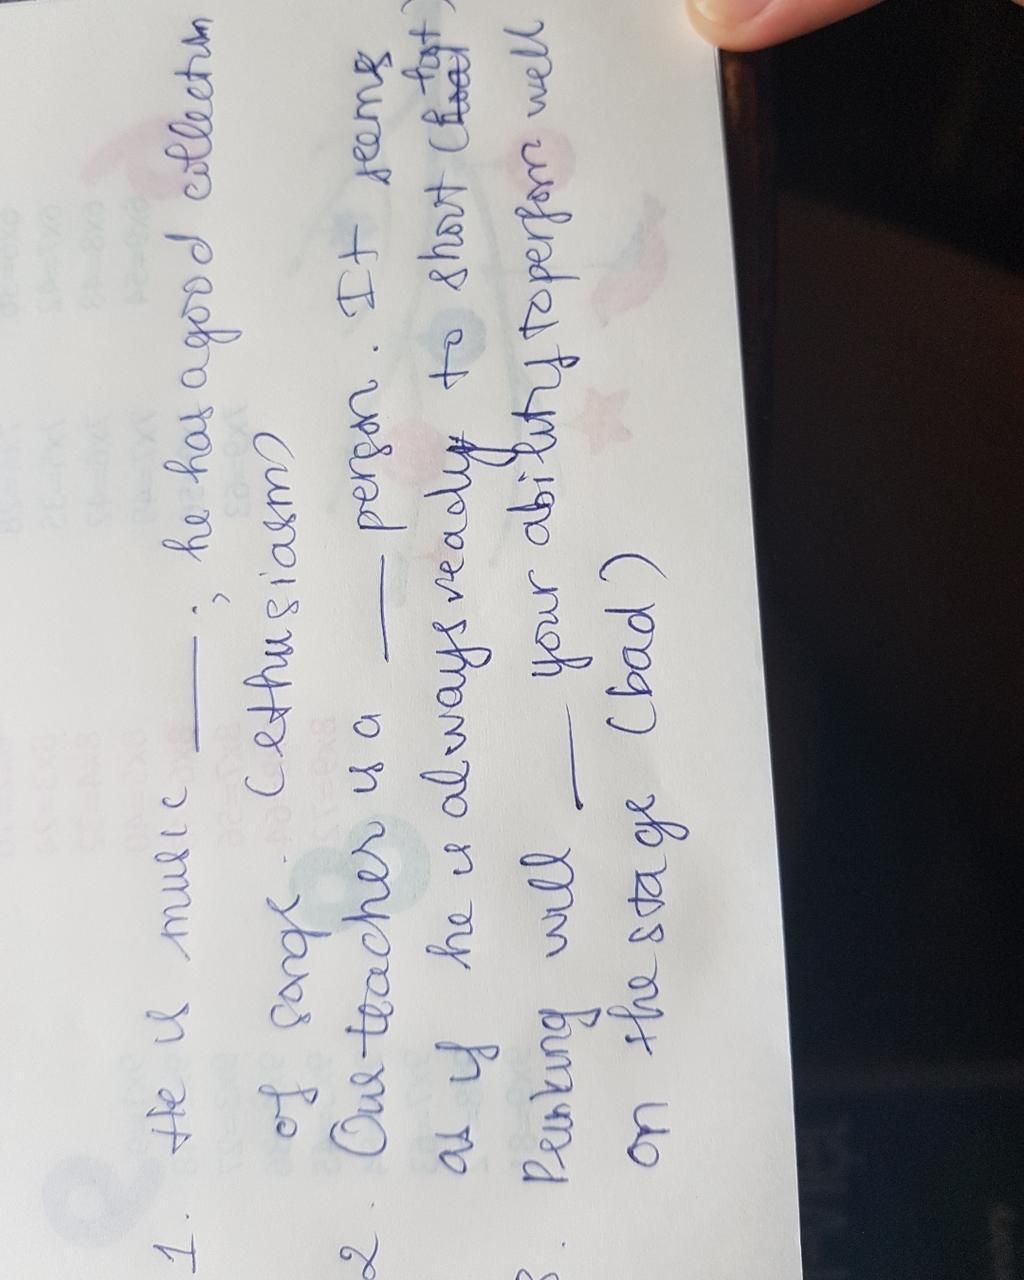 1. He is music ___; he has a good collectim
of songs. (ethusiasm)
2. Our teacher is a ___ person. It seems
as if he is always ready to short (hot)
3. will ___ your ability to perform well
on the stage (bad)